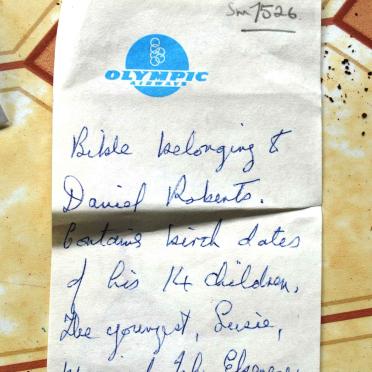 Sm 7526.
OLYMPIC
AIRWAYS
Bible belonging to
Daniel Roberts.
Contains birch dates
of his 14 children.
The youngest, Susie,